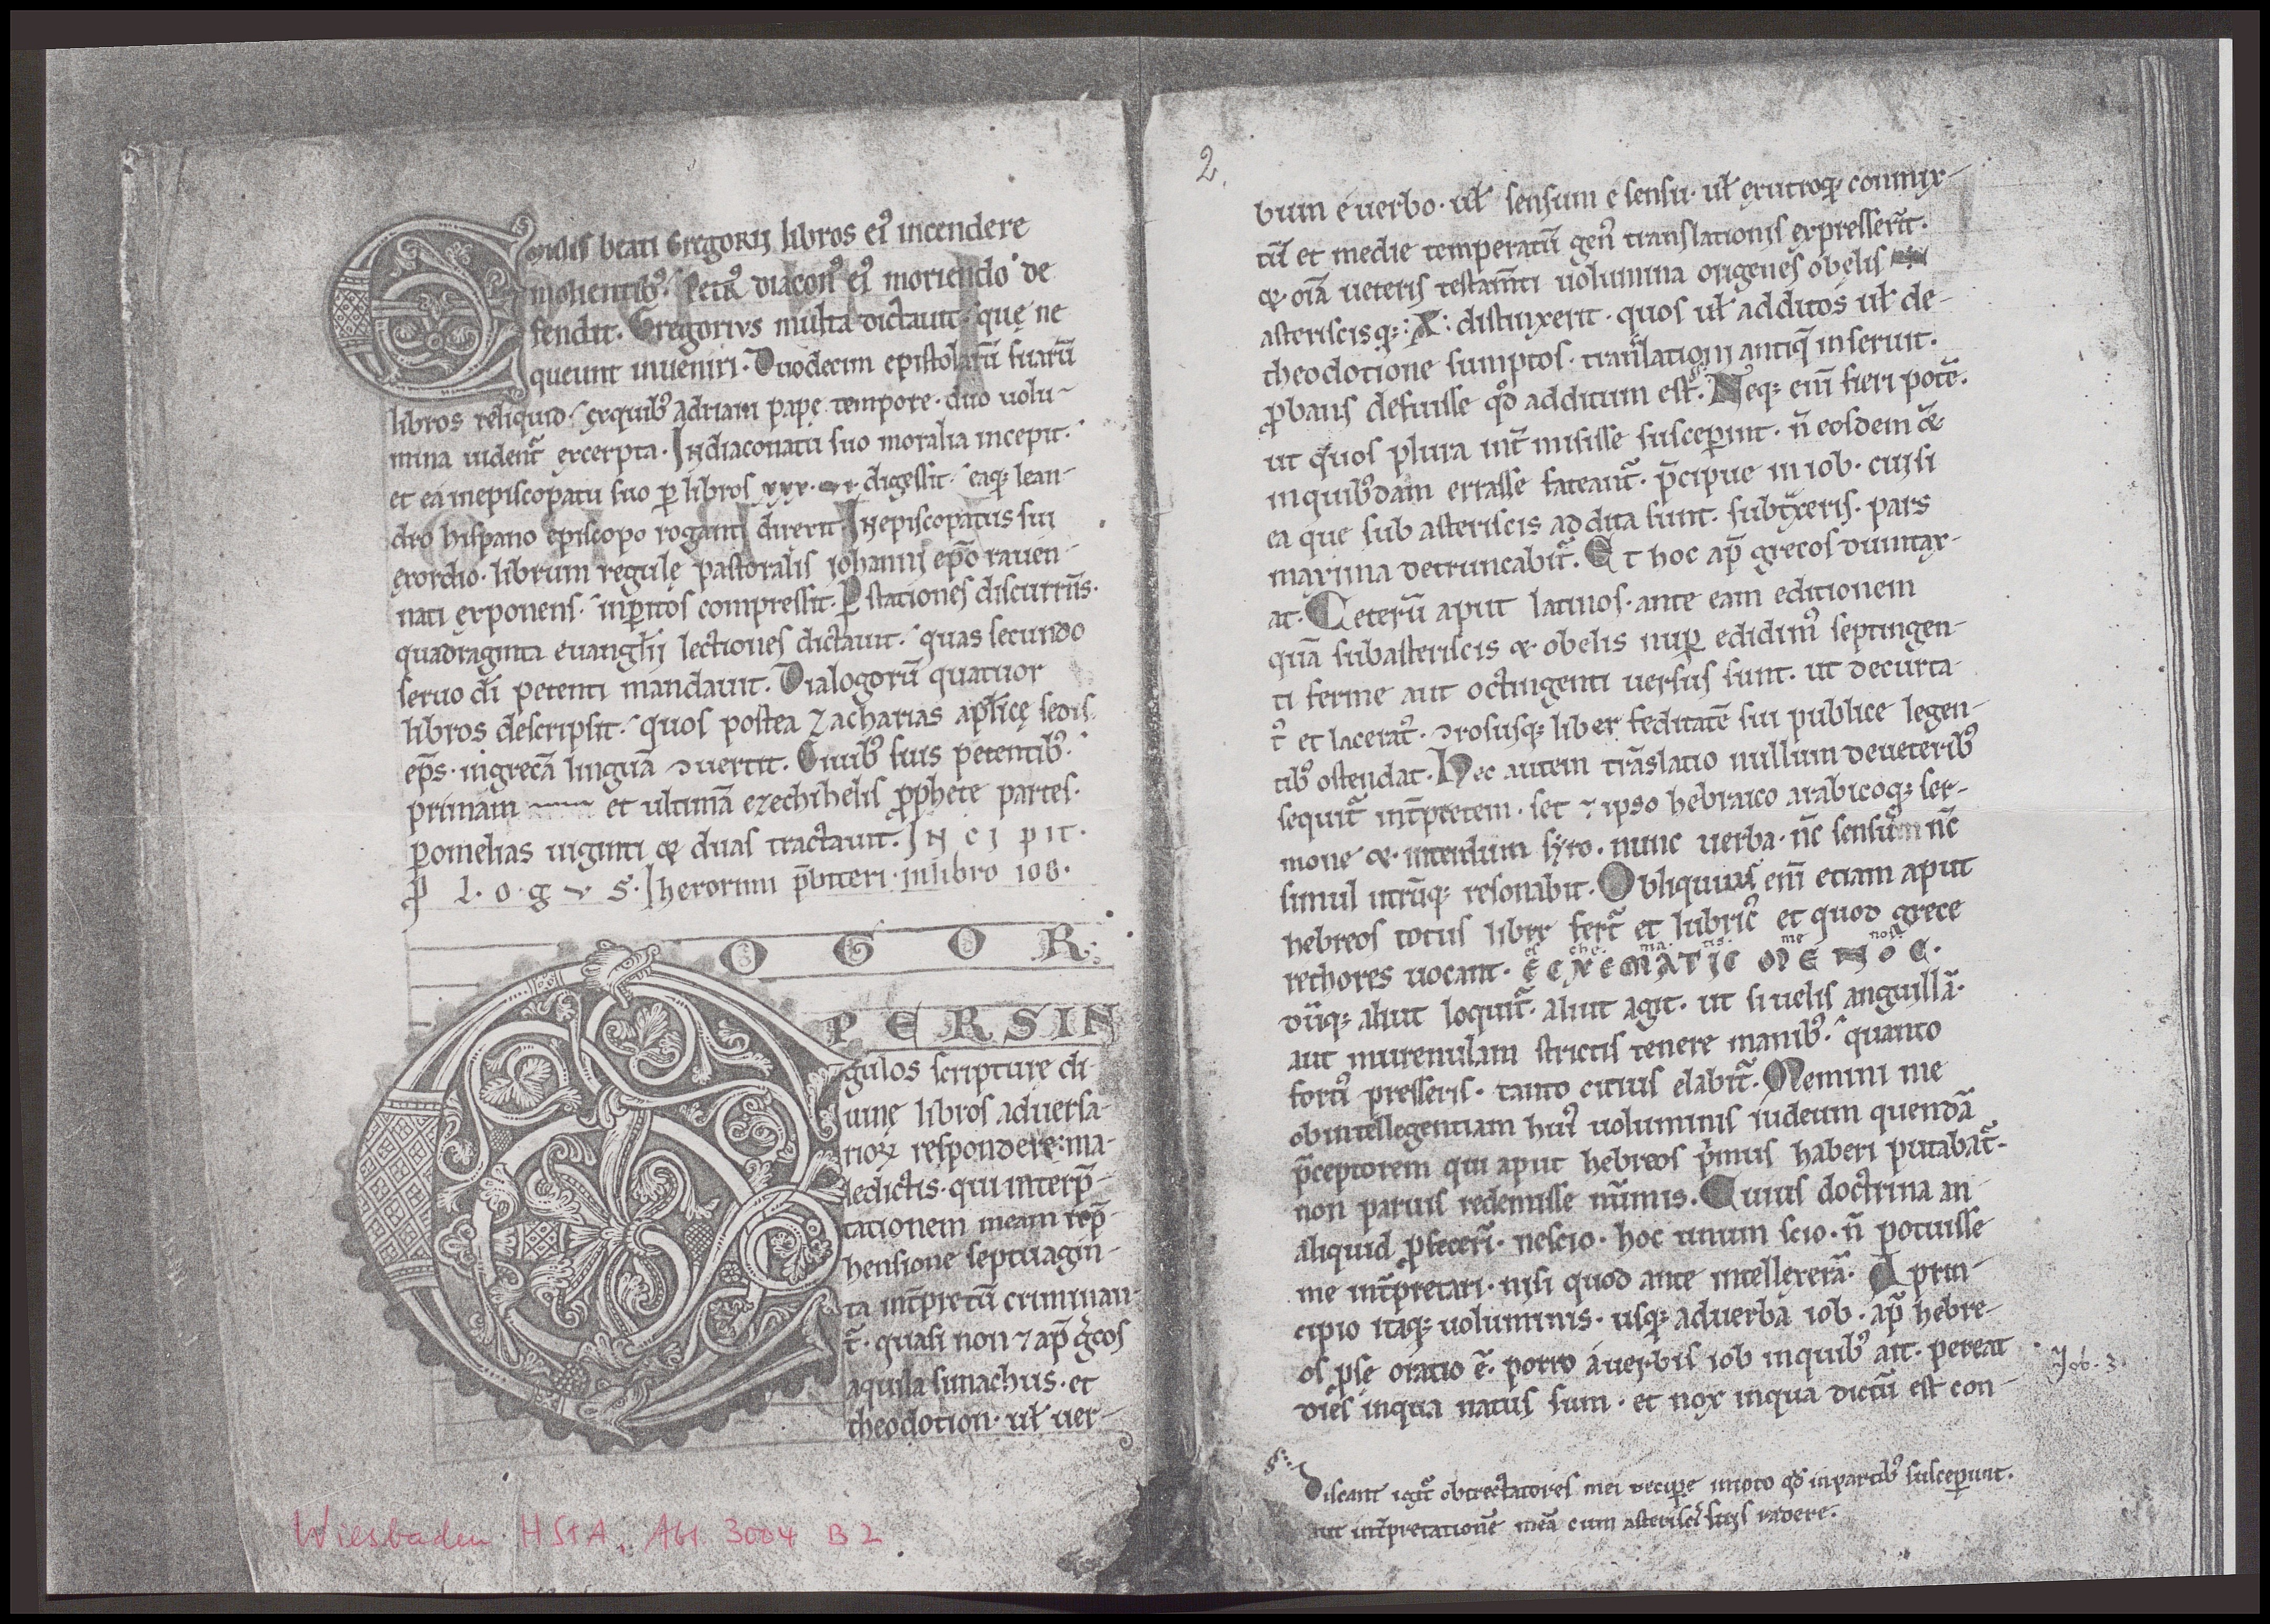 libros ei᷒ incendere
molientib᷒. Petr᷒ diacon᷒ ei᷒ moriendo de
fendit. Gregorivs multa dictauit. quę ne
queunt inueniri. Duodecim epistolarū suarū
libros reliquid. exquib᷒ adriani papę tempore. duo uolu-
mina uident᷑ excerpta. Indiaconatu suo moralia incepit.
et ea inepiscopatu suo ꝑ libros xxx. digessit. eaq; lean-
dro hispano episcopo roganti direxit. Inepiscopatus sui
exordio. librum regulę pastoralis iohanni ep̄o rauen-
nati exponens. inꝑitos compressit. Ꝑ stationes discurrn̄s.
quadraginta euangl̄ij lectiones dictauit. quas secundo
seruo dī petenti mandauit. Dialogorū quatuor
libros descripsit. quos postea zacharias apl̄icę sedis.
ep̄s. ingrecā linguā ɔuertit. Ciuib᷒ suis petentib᷒.
primam et ultimā ezechihelis ꝓphete partes.
ꝑomelias uiginti & duas tractauit. INCIPIT.
P L.O.G.V.S. Iheronimi pr̄biteri. inlibro iob.
COGOR
PERSIN
gulos scripture di-
uinę libros aduersa-
rioꝝ respondere: ma-
ledictis. qui interp̄-
tationem meam rep̄-
hensione septuagin-
ta int̄pretū criminan-
t᷑. quasi non ⁊ ap̄ g̊cos
aquila simachus. et
theodotion. uƚ uer-
2.
bum e uerbo. uƚ sensum e sensu. uƚ exutroq; commix-
tū et medie temperatū gen᷒ translationis expresserīt.
& oīa ueteris testam̄ti uolumina origenes obelis
asteriscisq; :X: distinxerit. quos uƚ additos uƚ de-
theodotione sumptos. translationi antiq̄ inseruit.
ꝓbans defuisse qd̄ additum est. Neq; enī fieri potē.
ut quos plura int̄misisse susceꝑint. n̄ eosdem &
inquib᷒dam errasse fateant᷑. p̄cipue in iob. cui si
ea que sub asteriscis addita sunt. subtxeris. pars
maxima detruncabit᷑. Et hoc ap̄ grecos dumtax-
at. Ceterū aput latinos. ante eam editionem
quā subasteriscis & obelis nuꝑ edidim᷒ septingen-
ti ferme aut octingenti uersus sunt. ut decurta-
t᷒ et lacerat᷒. ɔrosusq; liber feditatē sui publice legen-
tib᷒ ostendat. Hec autem trāslatio nullum deueterib᷒
sequit᷑ int̄pretem. set ex ipso hebraico arabicoq; ser-
mone & interdum syro. nunc uerba. nc̄ sensum nc̄
simul utrūq; resonabit. Obliquus enī etiam aput
hebreos totus liber fert᷑ et lubric᷒ et quod grece
es che. ma. tis. me nos.
rethores uocant. ECXEMATIC MENOC.
dūq; aliut loquit᷑. aliut agit. ut si uelis anguillā.
aut murenulam strictis tenere manib᷒. quanto
forti᷒ presseris. tanto citius elabit᷑. Memini me
obintellegentiam hui᷒ uoluminis iudeum quendā
p̄ceptorem qui aput hebreos p̄mus haberi putabat᷑.
non paruis redemisse nūmis. Cuius doctrina an
aliquid ꝓfecerī. nescio. hoc unum scio. n̄ potuisse
me int̄pretari. nisi quod ante intellexerā. A prin-
cipio itaq; uoluminis. usq; aduerba iob. ap̄ hebre-
os ꝓse oratio ē. porro auerbis iob inquib᷒ ait. pereat
dies inqua natus sum. et nox inqua dictū est con-
Iob. 3.
Discant igit᷑ obtrectatores mei reciꝑe intoto qd̄ inpartib᷒ susceꝑunt.
aut int̄pretationē meā cum asteriscis suis radere.
Wiesbaden HStA, Abt. 3004 B 2